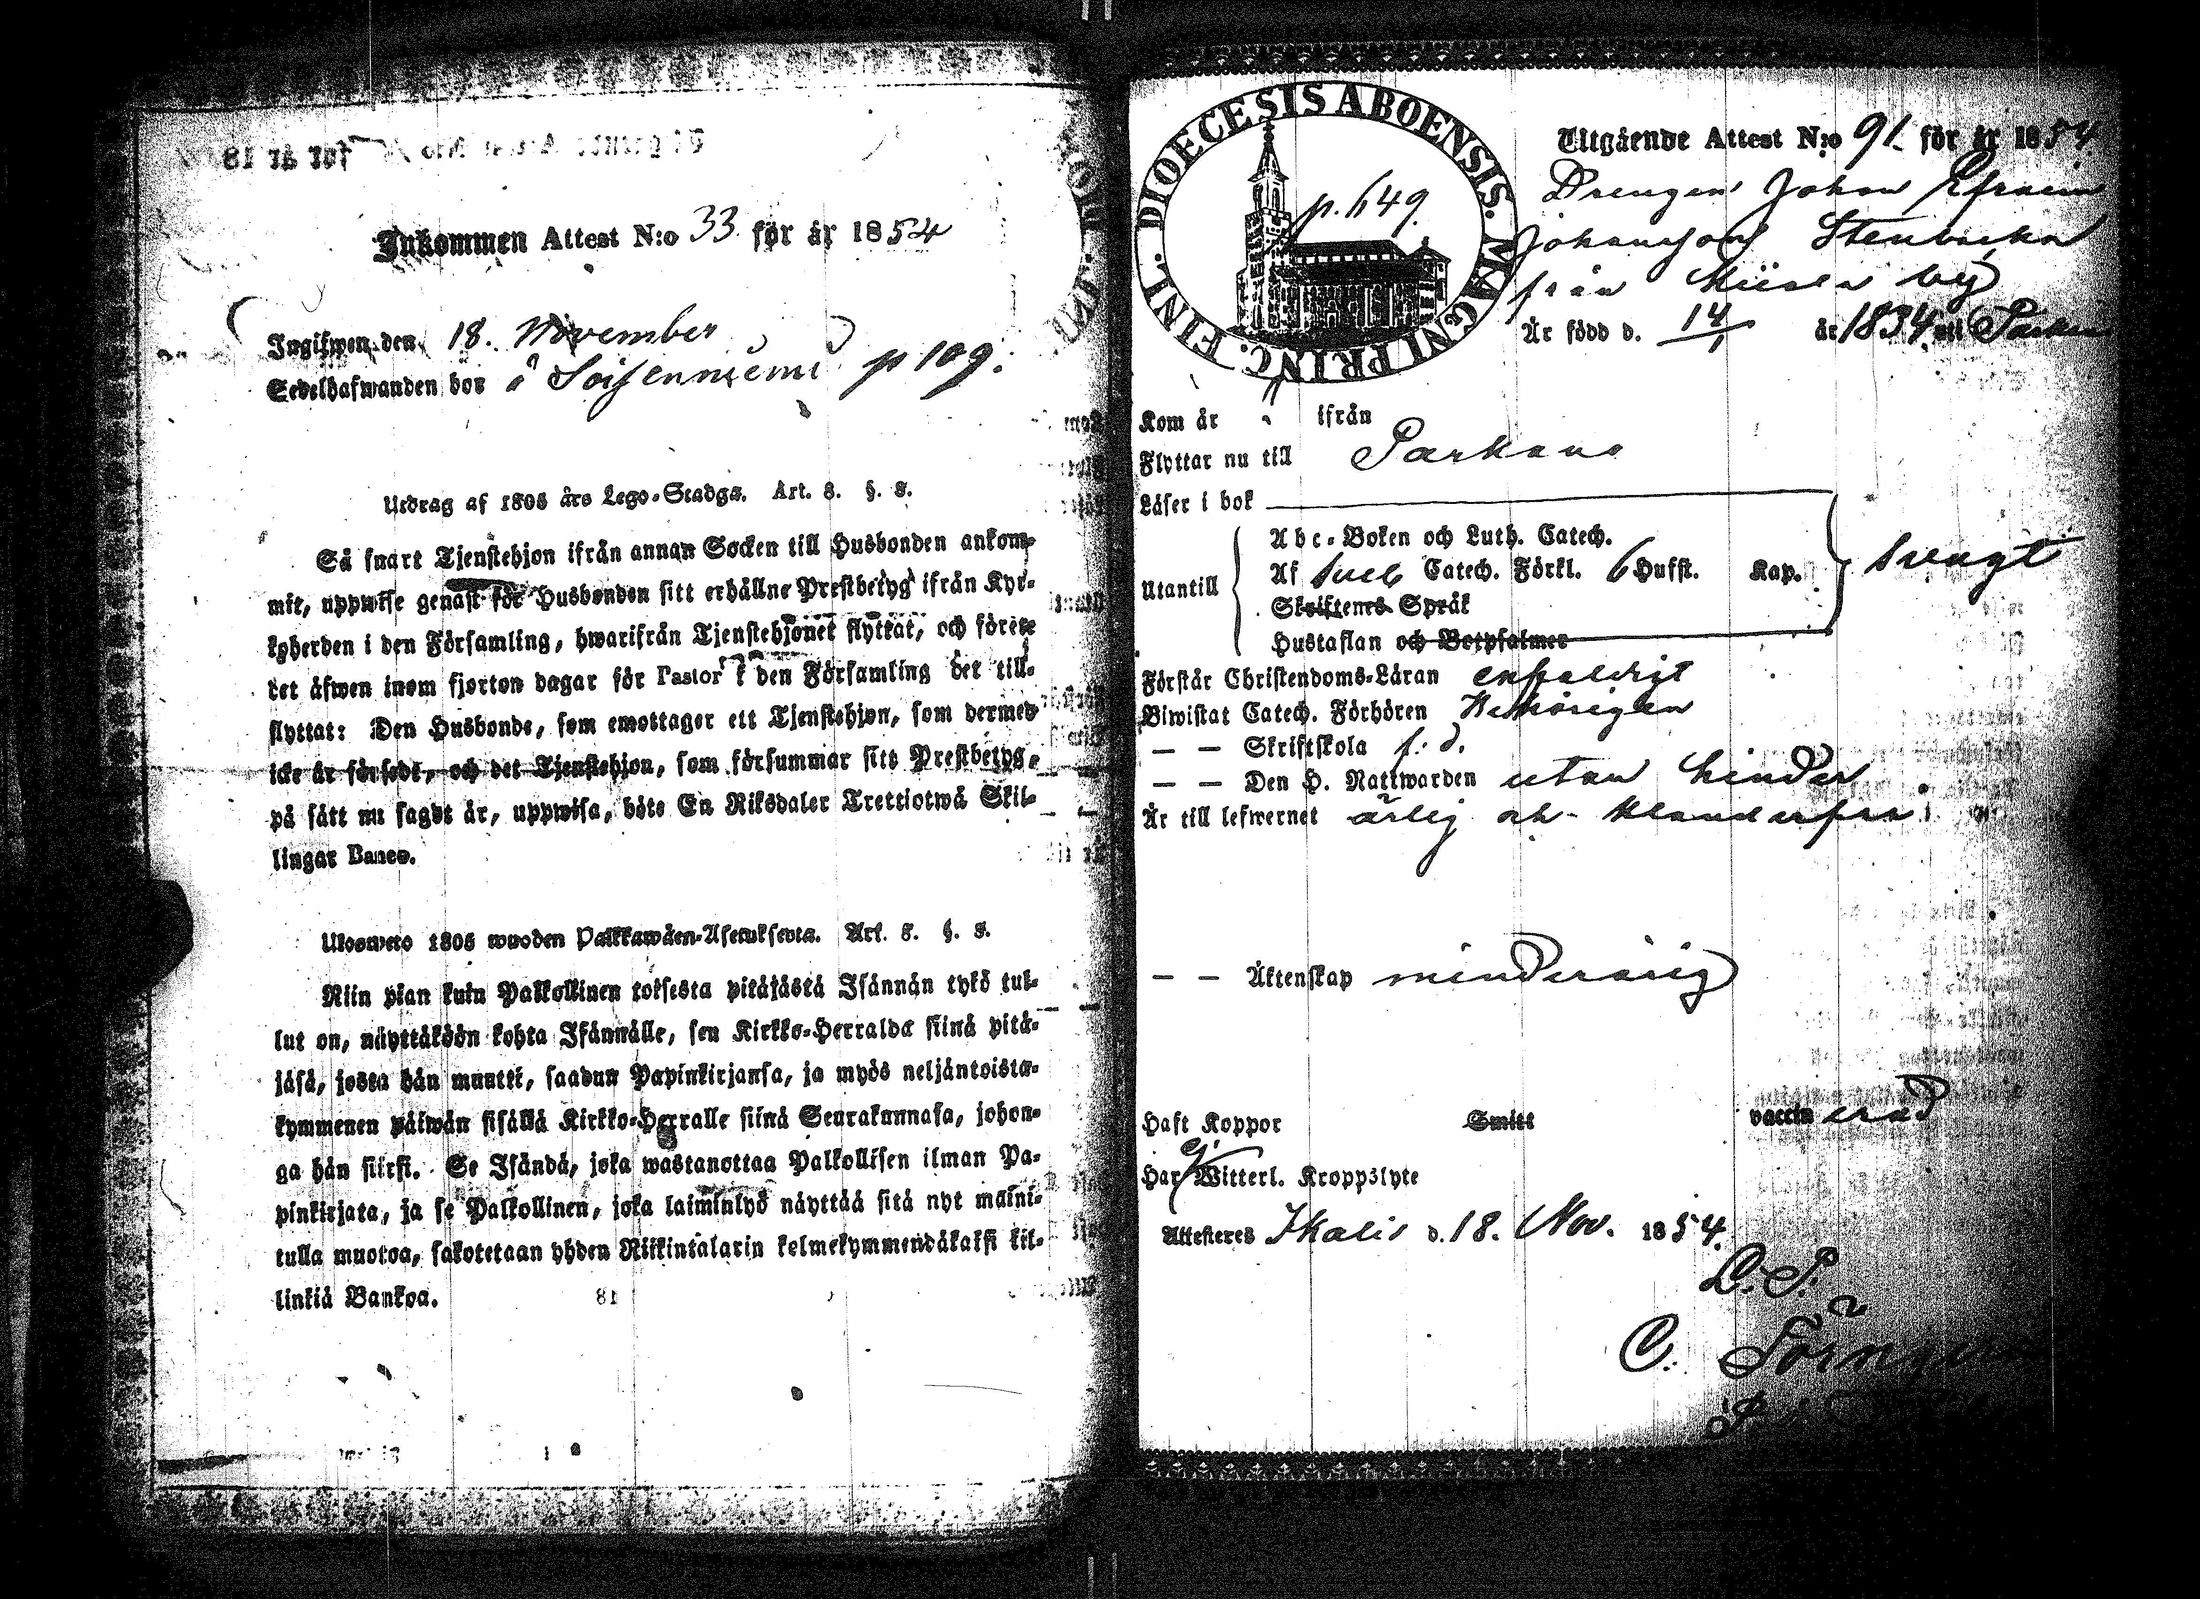 Inkommen Attest N:o 33 för år 1854
Ingifwen den 18. November
Sedelhafwanden bor å Soisenniemi p 109.
Utdrag af 1805 års Lego-Stadga. Art. 8. §. 8.
Så snart Tjenstehjon ifrån annan Socken till Husbonden ankom-
mit, uppwise genast för Husbonden sitt erhållne Prestbetyg ifrån Kyr-
koherden i den Församling, hwarifrån Tjenstehjonet flyttat, och förete
det äfwen inom fjorton dagar för Pastor i den Församling det till-
flyttat: Den Husbonde, som emottager ett Tjenstehjon, som dermed
icke är försedt, och det Tjenstehjon, som försummar sitt Prestbetyg,
på sätt nu sagdt är, uppwisa, böte En Riksdaler Trettiotwå Skil-
lingar Banco.
Ulosweto 1805 wuoden Palkkawäen-Asetuksesta. Art. 8. §. 8.
Niin pian kuin Palkollinen toisesta pitäjästä Isännän tykö tul-
lut on, näyttäköön kohta Isännälle, sen Kirkko-Herralda siinä pitä-
jäsä, josta hän muutti, saadun Papinkirjansa, ja myös neljäntoista-
kymmenen päiwän sisällä Kirkko-Herralle siinä Seurakunnasa, johon-
ga hän siirsi. Se Isändä, joka wastanottaa Palkollisen ilman Pa-
pinkirjata, ja se Palkollinen, joka laiminlyö näyttää sitä nyt maini-
tulla muotoa, sakotetaan yhden Riikintalarin kolmekymmendäkaksi kil-
linkiä Bankoa.
DIOECESIS ABOENSIS. MAGNI PRINC. FINL.
p. 649.
Utgående Attest N:o 91. för år 1854
Drengen Johan Efraim
Johansson Stenbacka
från by
Är född d. 14/1 år 1834 uti Parkan
Kom år ifrån
Flyttar nu till Parkano
Läser i bok
Utantill
Abc-Boken och Luth. Catech.
Af Sveb Catech. Förkl. 6 Hufst. Kap.
Skriftenes Språk
Hustaflan och Botpsalmer
svagt
Förstår Christendoms-Läran enfaldigt
Biwistat Catech. Förhören behörigen
— — Skriftskola f. d.
— — Den H. Nattwarden utan hinder
Är till lefwernet ärlig och klanderfri
— — Äktenskap minderårig
Haft Koppor Smitt vaccinerad
Har ej Witterl. Kroppslyte
Attesteres Ikalis d. 18. Nov. 1854.
L. S.
C.